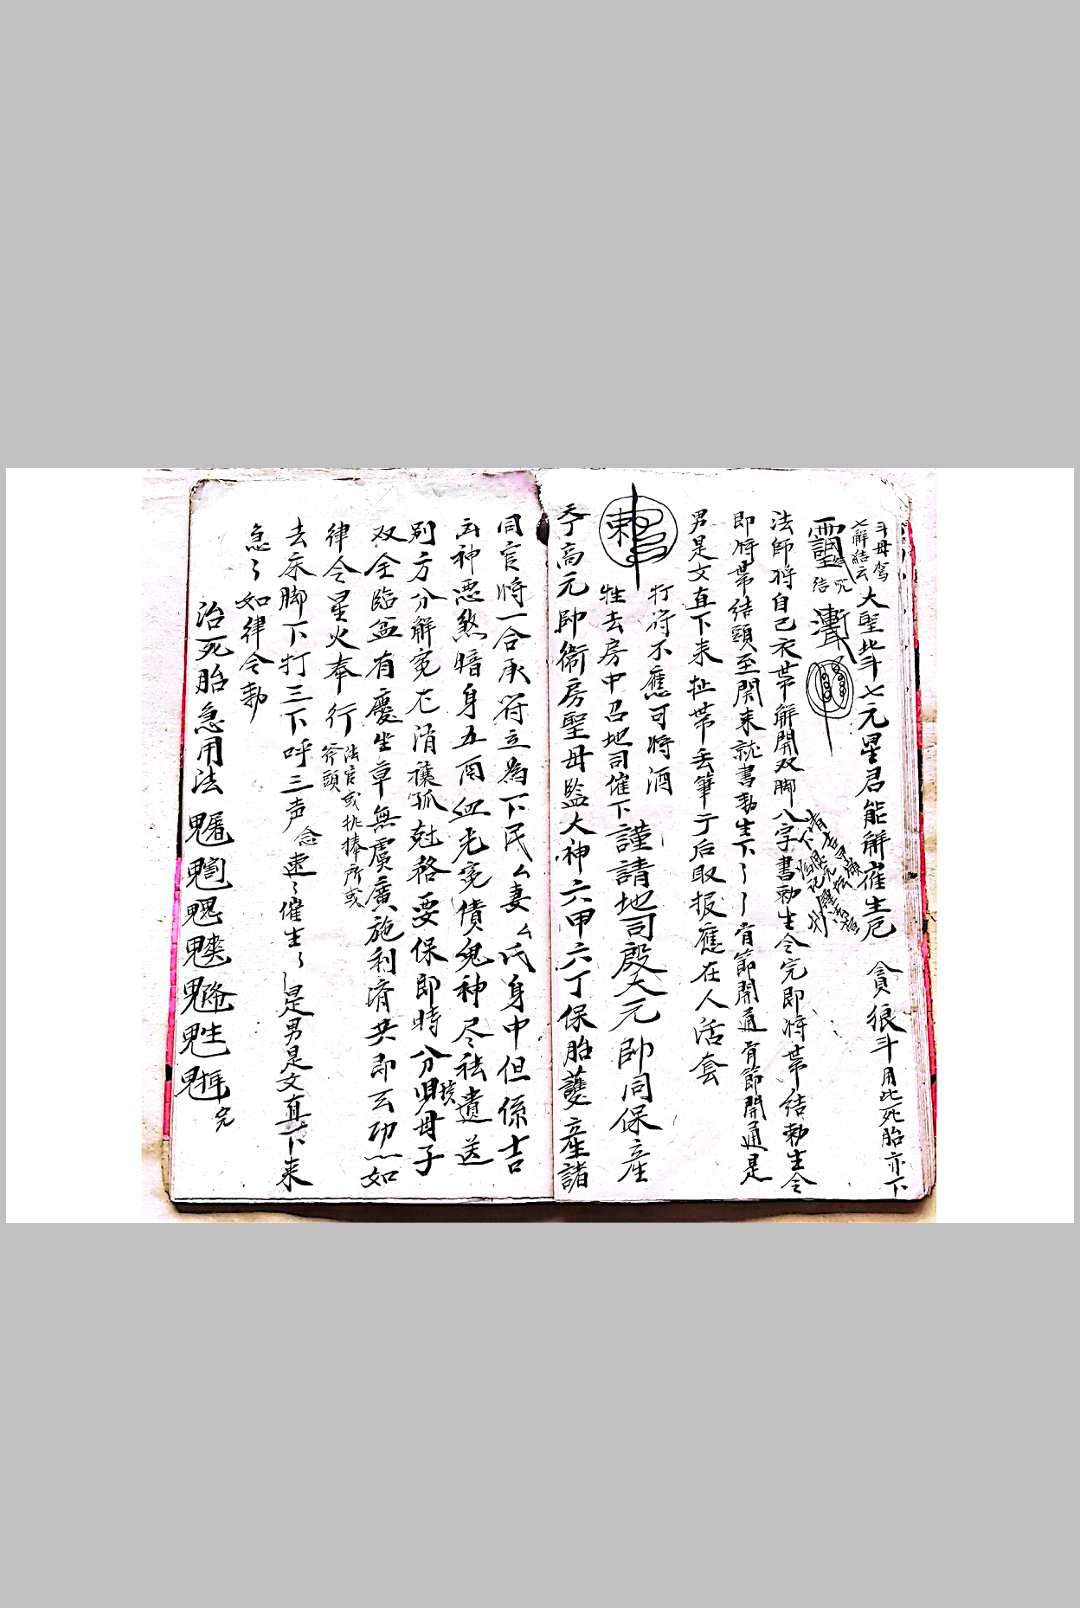 斗母鸾
七解結云
大聖北斗七元星君能解催生厄 貪狼斗用此死胎亦下
結
法師将自己衣带解開双脚八字書勅生令完即将带结勅生令
即将带结頭至開来就書勅生下〻〻育節開通育節開通是
男是文直下来扯带丢筆于后取报應在人活套
打符不應可将酒
牲去房中召地司催下謹請地司殷大元帅同保産
高元帅衛房聖母監大神六甲六丁保胎護産諸
同官将一合承符立為下民厶妻厶氏身中但係吉
凶神悪煞暗身五酉血光寃債鬼神尽祛遺送
别方分解寃在消禳孤尅務要保即時分娩母子
双全臨盆有慶坐草無虞廣施利濟共即玄功如
律令星火奉行
法官或扒捧所或
斧頭
去床脚下打三下呼三声念速〻催生〻是男是文直下来
急〻如律令勅
治死胎急用法
完